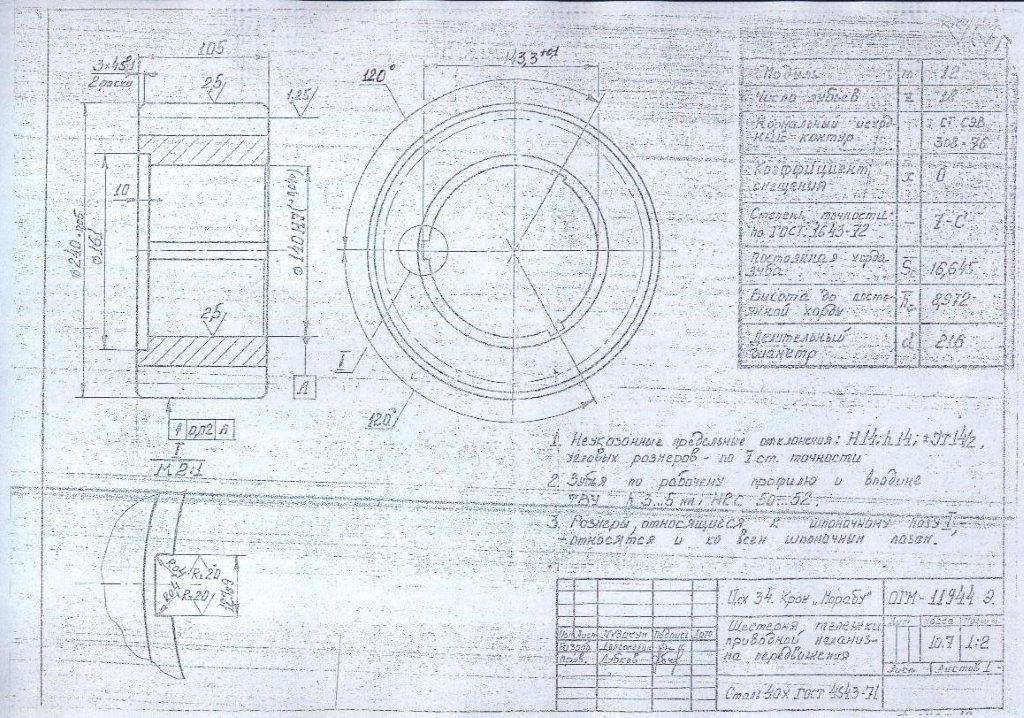 105
3×45°
2 фаски
2,5
1,25
120°
143,3+0,1
10
φ161
φ140H7
2,5
A
I
120°
0,02 A
I
М 2:1
R0,4
Rz20
R0,4
Rz20
12Js9
Модуль m 12
Число зубьев z 18
Нормальный исход-
ный контур СТ СЭВ
308-76
Коэффициент
смещения x 0
Степень точности
по ГОСТ 1643-72 – 7-С
Постоянная хорда
зуба S̅c 16,645
Высота до посто-
янной хорды h̅c 8,972
Делительный
диаметр d 216
1. Неуказанные предельные отклонения: H14; h14;
угловых размеров - по 7 ст. точности
2. Зубья по рабочему профилю и впадине
ТВЧ h 3...5 мм; HRC 50...52.
3. Размеры, относящиеся к шпоночному пазу I,
-относятся и ко всем шпоночным пазам.
Цех 34. Кран „Марабу" ОГМ-11944 Э.
Шестерня тележки
приводной механиз-
ма передвижения
Лит Масса Масшт
10.7 1:2
Лист Листов 1
Изм Лист № докум Подпись Дата
Разраб.
Пров.
Сталь 40Х ГОСТ 4543-71